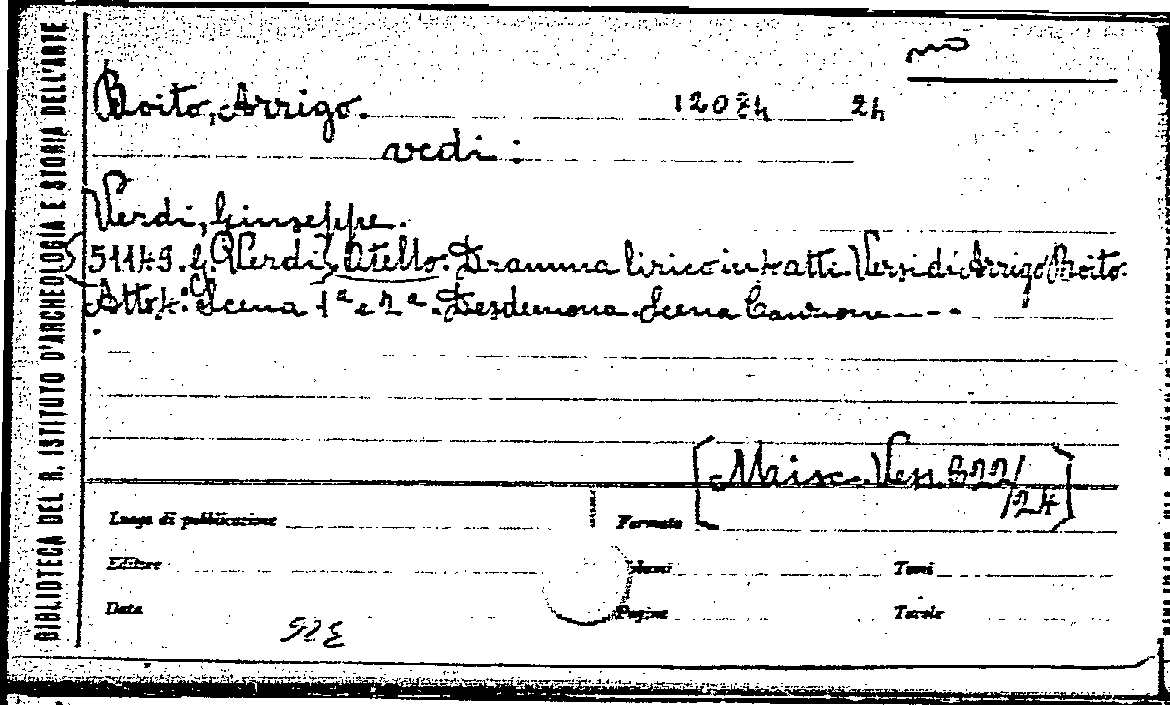 BIBLIOTECA DEL R. ISTITUTO D'ARCHEOLOGIA E STORIA DELL'ARTE
Boito, Arrigo. 24
vedi:
Verdi, Giuseppe.
51149. G. Verdi. Otello. Dramma lirico in 4 atti. Versi di Arrigo Boito.
Atto 4° Scena 1ª e 2ª. Desdemona. Scena Canzone----
[Misc. Ven. 822/
/24]
Luogo di pubblicazione Formato
Editore Volumi Tomi
Data Pagine Tavole